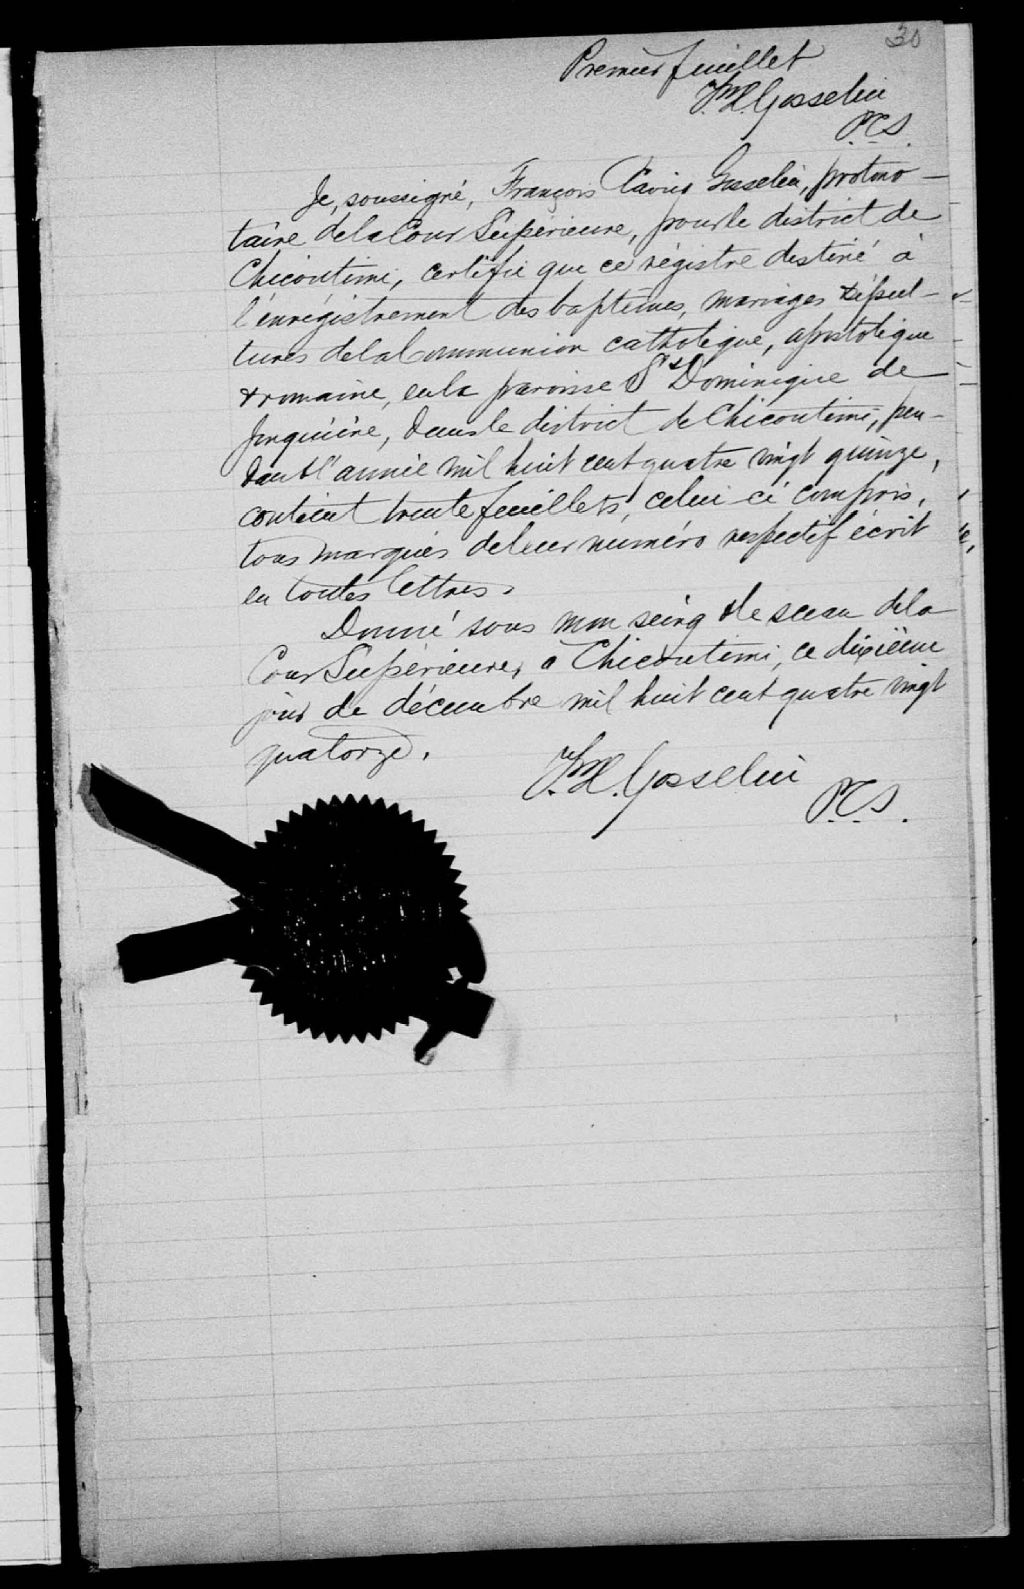 30
Premier feuillet
F. X. Gosselin
P.C.S.
Je, soussigné, François Xavier Gosselin, protono-
taire de la Cour Supérieure, pour le district de
Chicoutimi, certifie que ce régistre destiné à
l'enrégistrement des baptêmes, mariages & sépul-
tures de la Communion catholique, apostolique
& romaine, en la paroisse St Dominique de
Jonquière, dans le district de Chicoutimi, pen-
dant l'année mil huit cent quatre vingt quinze,
contient trente feuillets, celui ci compris,
tous marqués de leur numéro respectif écrit
en toutes lettres.
Donné sous mon seing & le sceau de la
Cour Supérieure, à Chicoutimi, ce dixième
jour de décembre mil huit cent quatre vingt
quatorze.
F. X. Gosselin
P.C.S.